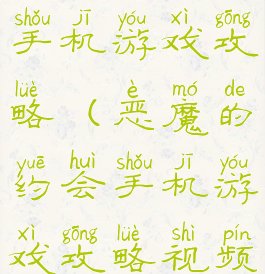 shǒu jī yóu xì gōng
手机游戏攻
lüè è mó de
略（恶魔的
yuē huì shǒu jī yóu
约会手机游
xì gōng lüè shì pín
戏攻略视频